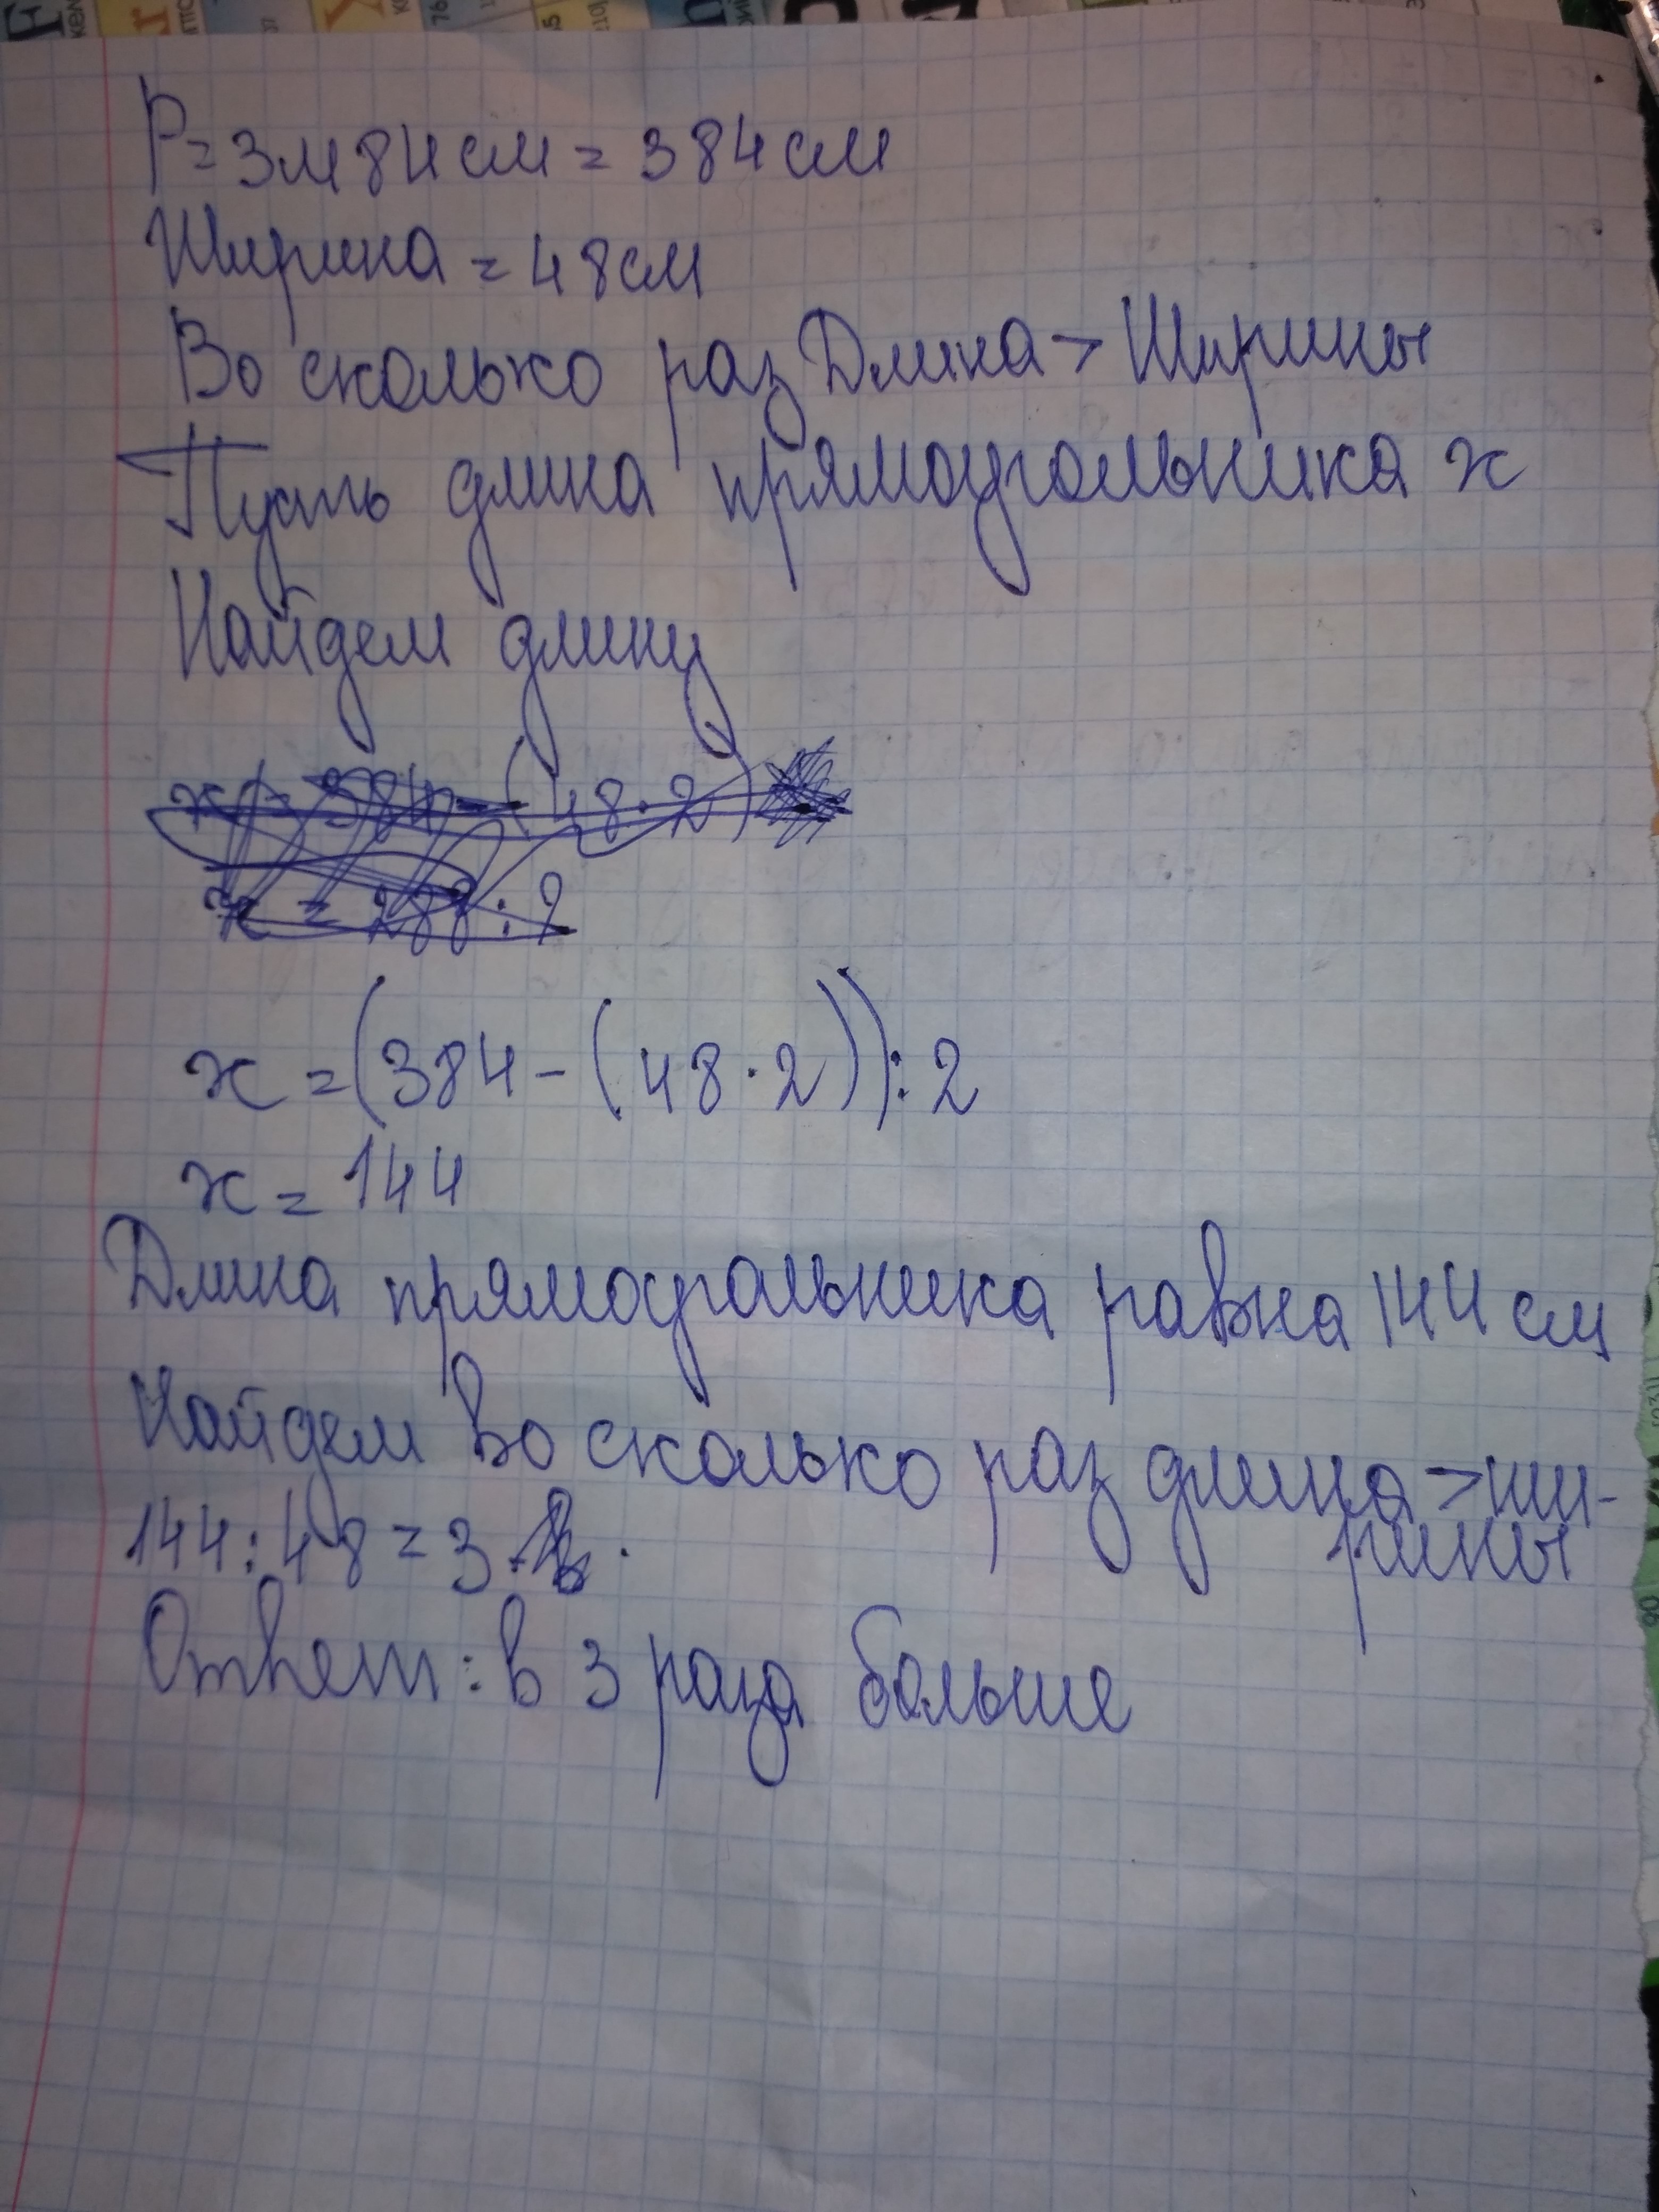 P = 3м 84 см = 384 см
Ширина = 48 см
Во сколько раз Длина > Ширины
Пусть длина прямоугольника x
Найдем длину
x = 384 - (48 · 2)
x = 288 : 2
x = (384 - (48 · 2)) : 2
x = 144
Длина прямоугольника равна 144 см
Найдем во сколько раз длина > ши-
рины
144 : 48 = 3
Ответ: в 3 раза больше